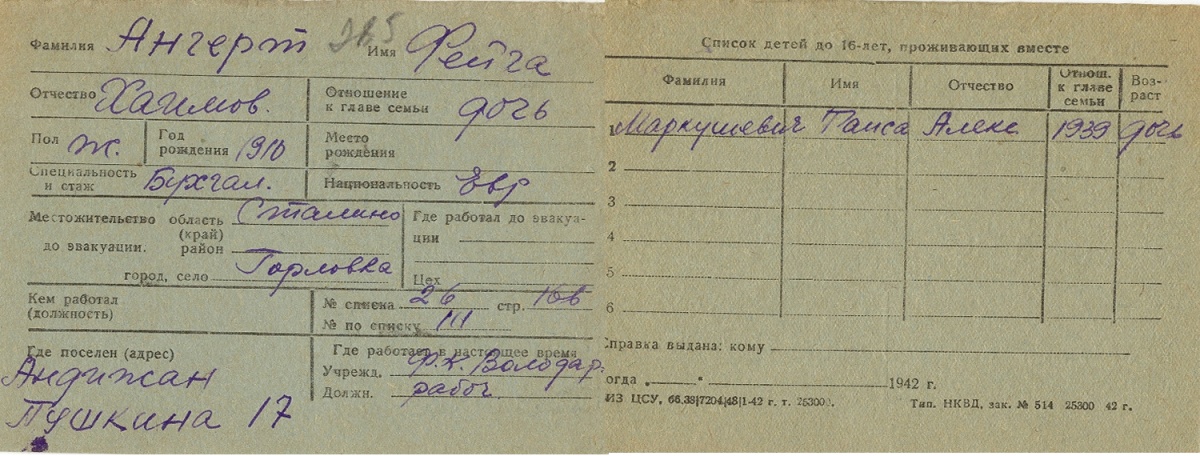 Фамилия Ангерт 265 Имя Фейга
Отчество Хаимов. Отношение к главе семьи дочь
Пол Ж. Год рождения 1910 Место рождения
Специальность и стаж Бухгал. Национальность Евр
Местожительство до эвакуации. область (край) Сталино
район
город, село Горловка
Где работал до эвакуации
Цех
Кем работал (должность)
№ списка 26 стр. 166
№ по списку 111
Где поселен (адрес)
Андижан
Пушкина 17
Где работает в настоящее время
Учрежд. Ф.К. Володар.
Должн. рабоч
Список детей до 16-лет, проживающих вместе
Фамилия Имя Отчество Отнош. к главе семьи Возраст
1 Маркушевич Раиса Алекс. 1939 дочь
2
3
4
5
6
Справка выдана: кому
огда 1942 г.
ИЗ ЦСУ, 66.38|7204|48|1-42 г. т. 253000. Тип. НКВД, зак. № 514 25300 42 г.